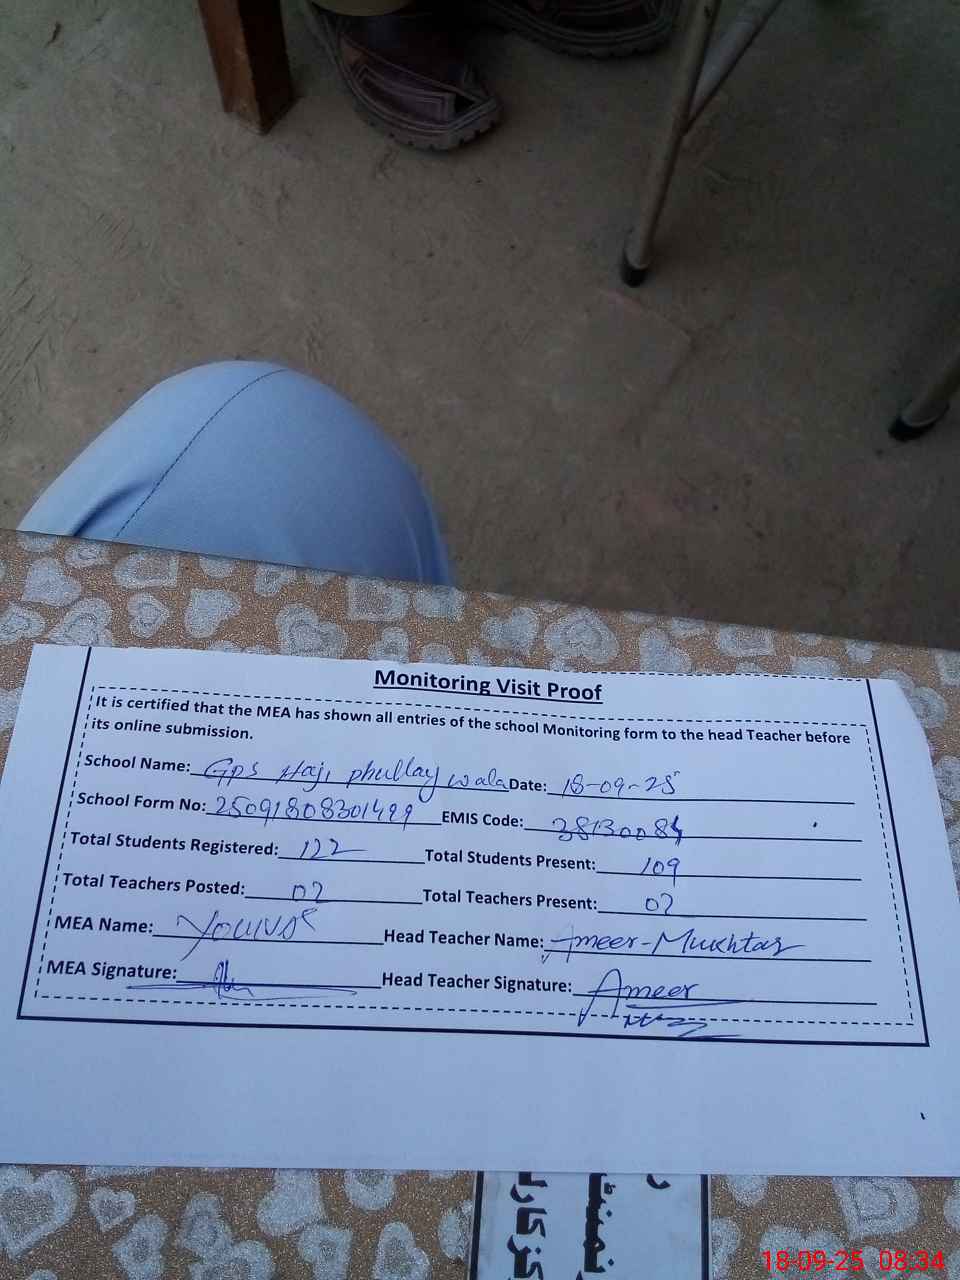 Monitoring Visit Proof
It is certified that the MEA has shown all entries of the school Monitoring form to the head Teacher before
its online submission.
School Name: Gps Haji phullay wala Date: 18-09-25
School Form No: 25091808301499 EMIS Code: 38130084
Total Students Registered: 122 Total Students Present: 109
Total Teachers Posted: 02 Total Teachers Present: 02
MEA Name: Head Teacher Name: Ameer-Mukhtar
MEA Signature: Head Teacher Signature: Ameer
18-09-25 08:34